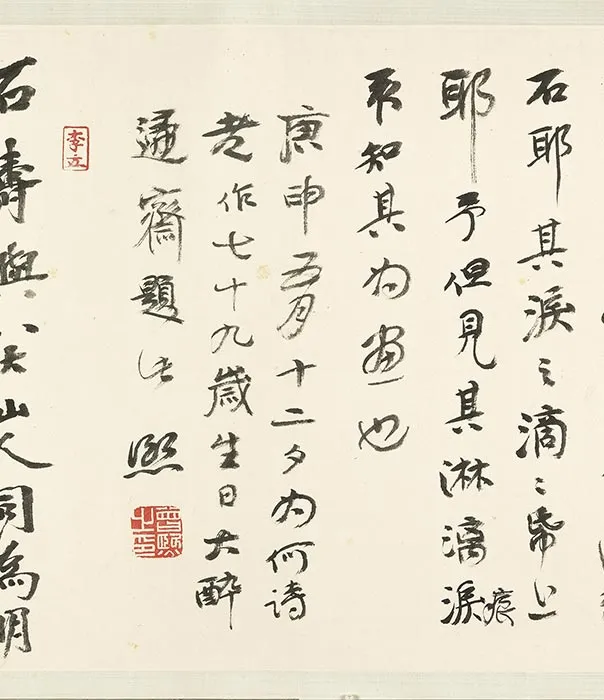 石耶其淚之滴滴帋上
耶予但見其淋漓淚痕
不知其為畫也
庚申五月十二夕為何詩
老作七十九歲生日大醉
齋題 熙
曾熙之印
李立
石濤與八大山人同為明